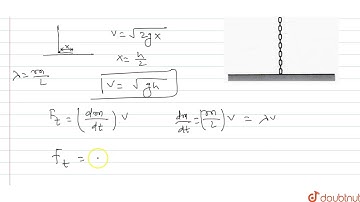 x
v = √2gx
x = h/2
λ = m/L
v = √gh
F_t = (dm/dt) v
dm/dt = (m/L) v = λv
F_t =
doubtnut